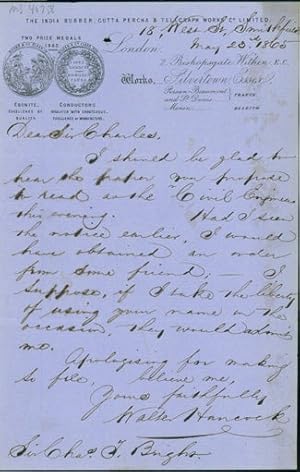 THE INDIA RUBBER, GUTTA PERCHA & TELEGRAPH WORKS Co. LIMITED.
TWO PRIZE MEDALS
1862
18, West St, Smithfield
London.
May 23rd 1865
2 Bishopsgate Within, E.C.
Works, Silvertown, Essex,
Persan-Beaumont
and St. Denis
FRANCE
Menin
BELGIUM
EBONITE,
EXCELLENCE OF
QUALITY.
CONDUCTORS
INSULATED WITH CAOUTCHOUC,
EXCELLENCE OF MANUFACTURE.
Dear Sir Charles,
I should be glad to
hear the paper you propose
to read at the "Civil Engineers
this evening. Had I seen
the notice earlier, I would
have obtained an order
from some friend; — I
suppose, if I take the liberty
of using your name on the
occasion, they would admit
me.
Apologising for making
so free, believe me,
Yours faithfully,
Walter Hancock
Sir Chas. T. Bright.